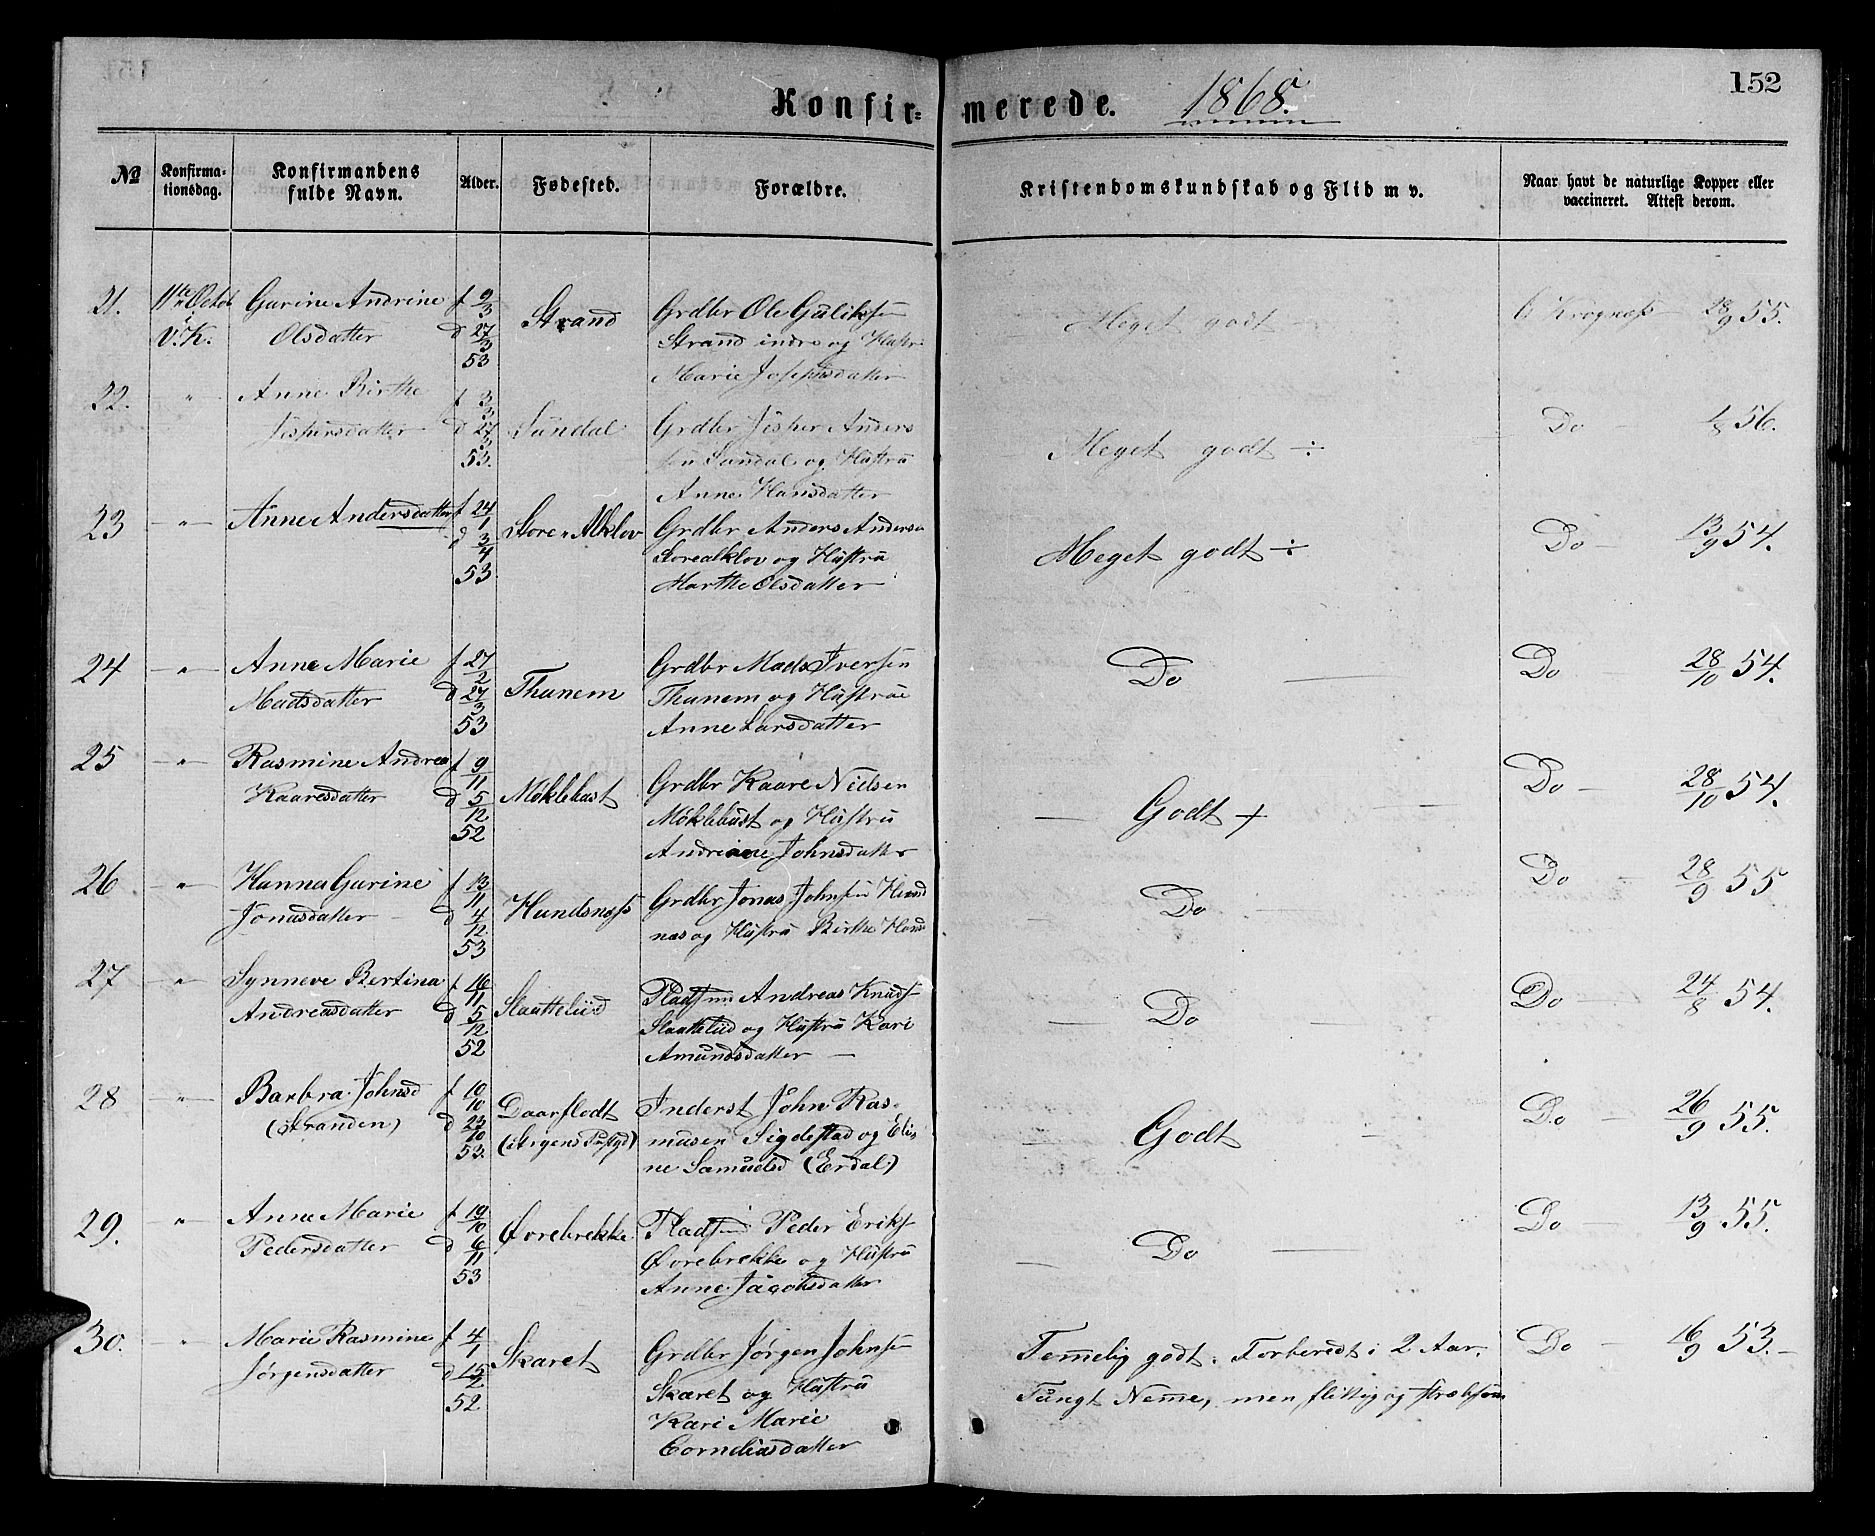 152
Konfir= merede. 1868.
No Konfirma-tionsdag. Konfirmandens fulde Navn. Alder. Fødested. Forældre. Kristendomskundskab og Flid m v. Naar havt de naturlige Kopper eller vaccineret. Attest derom.
21. 11te Octob Gurine Andrine f 9/3 Strand Grdbr Ole Guliks​en Meget godt Krognæss 28/9 55.
V. K. Olsdatter d 27/3 Strand indre og Hustr
53 Marie Josephsdatter
22. " Anne Birthe f 3/3 Sundal Grdbr Jesper Anders Meget godt ÷ Do 1/8 56.
Jespersdatter d 27/3 sen Sundal og Hustru
53. Anne Hansdatter
23 " Anne Andersdatter f 24/1 Store Alklov Grdbr Anders Anders Meget godt ÷ Do 13/9 54.
d 3/4 Storealklov og Hustru
53 Marthe Olsdatter
24 " Anne Marie f 27/2 Thunem Grdbr Mads Iversen Do Do 28/10 54.
Madsdatter d 27/3 Thunem og Hustrue
53 Anne Larsdatter
25 " Rasmine Andrea f 9/11 Møklebust Grdbr Kaare Nielsen Godt + Do 28/10 54.
Kaaresdatter d 5/12 Møklebust og Hustru
52 Johnsdatter
26 " Hanna Gurine f 13/11 Hundsnæss Grdbr Jonas Johnsen Hund Do Do 28/9 55
Jonasdatter d 4/12 næs og Hustru Birthe Hans
53
27 " Synneve Bertina f 16/11 Slaattelid Pladsm Andreas Knuds Do Do 24/8 54.
Andreasdatter d 5/12 Slaattelid og Hustru Kari
52 Amundsdatter
28 " Barbra Johnsd f 10/10 Daarflodt Inderst John Ras- Godt Do 26/9 55.
(Stranden) d 23/10 musen Sigdestad og Eli-
53. ne Samuelsd (Erdal)
29. " Anne Marie f 19/10 Ørebrekke Pladsm Peder Eriks Do Do 13/9 55.
Pedersdatter d 6/11 Ørebrekke og Hustru
53 Anne Jacobsdatter
30. " Marie Rasmine f 4/1 Skaret Grdbr Jørgen Johnsen Temelig godt. Forberedt i 2 Aar. Do 16/9 53.
Jørgensdatter d 15/2 Skaret og Hustru Tungt Neme, men flittig og stræbsom
52 Kari Marie
Corneliasdatter